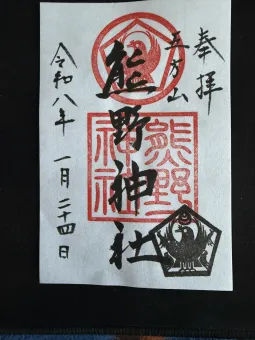 奉拝
五方山
熊野神社
熊野
神社
令和八年 一月二十四日